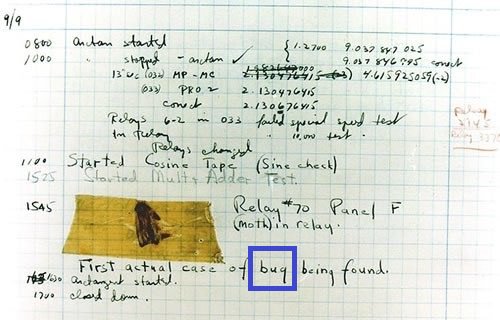 9/9
0800 antan started { 1.2700 9.037 847 025
1000 " stopped - antan ✓ 9.037 846 995 correct
13"uc (032) MP-MC 2.130476415 4.615925059(-2)
(033) PRO 2 2.130476415
correct 2.130676415
Relays 6-2 in 033 failed special speed test
in Relay " 10,000 test .
Relays changed
Relay
2145
Relay 3370
1100 Started Cosine Tape (Sine check)
1525 Started Multi Adder Test.
1545 Relay #70 Panel F
(moth) in relay.
First actual case of bug being found.
1630 antangent started.
1700 closed down.